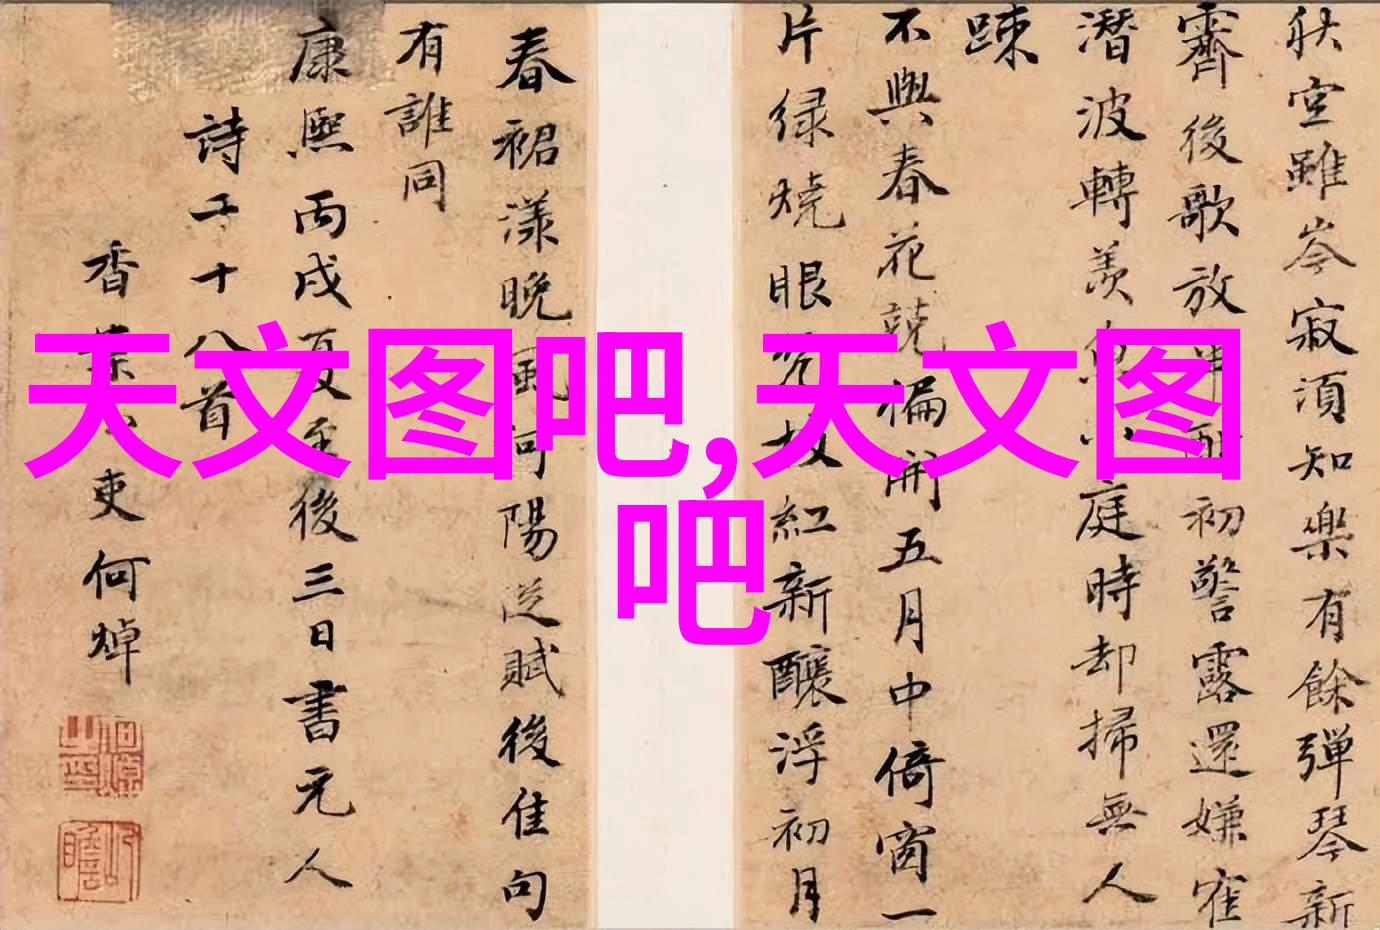 秋空雖岑寂須知樂有餘彈琴新
霽後歌放初警露還嫌窄
潛波轉羨魚庭時却掃無人
踈
不與春花競徧開五月中倚窗一
片緑燒眼紅新釀浮初月
春裙漾晚風河陽從賦後佳句
有誰同
康熙丙戌夏至後三日書元人
詩二十八首
香案吏何焯
天文图吧,天文图
吧